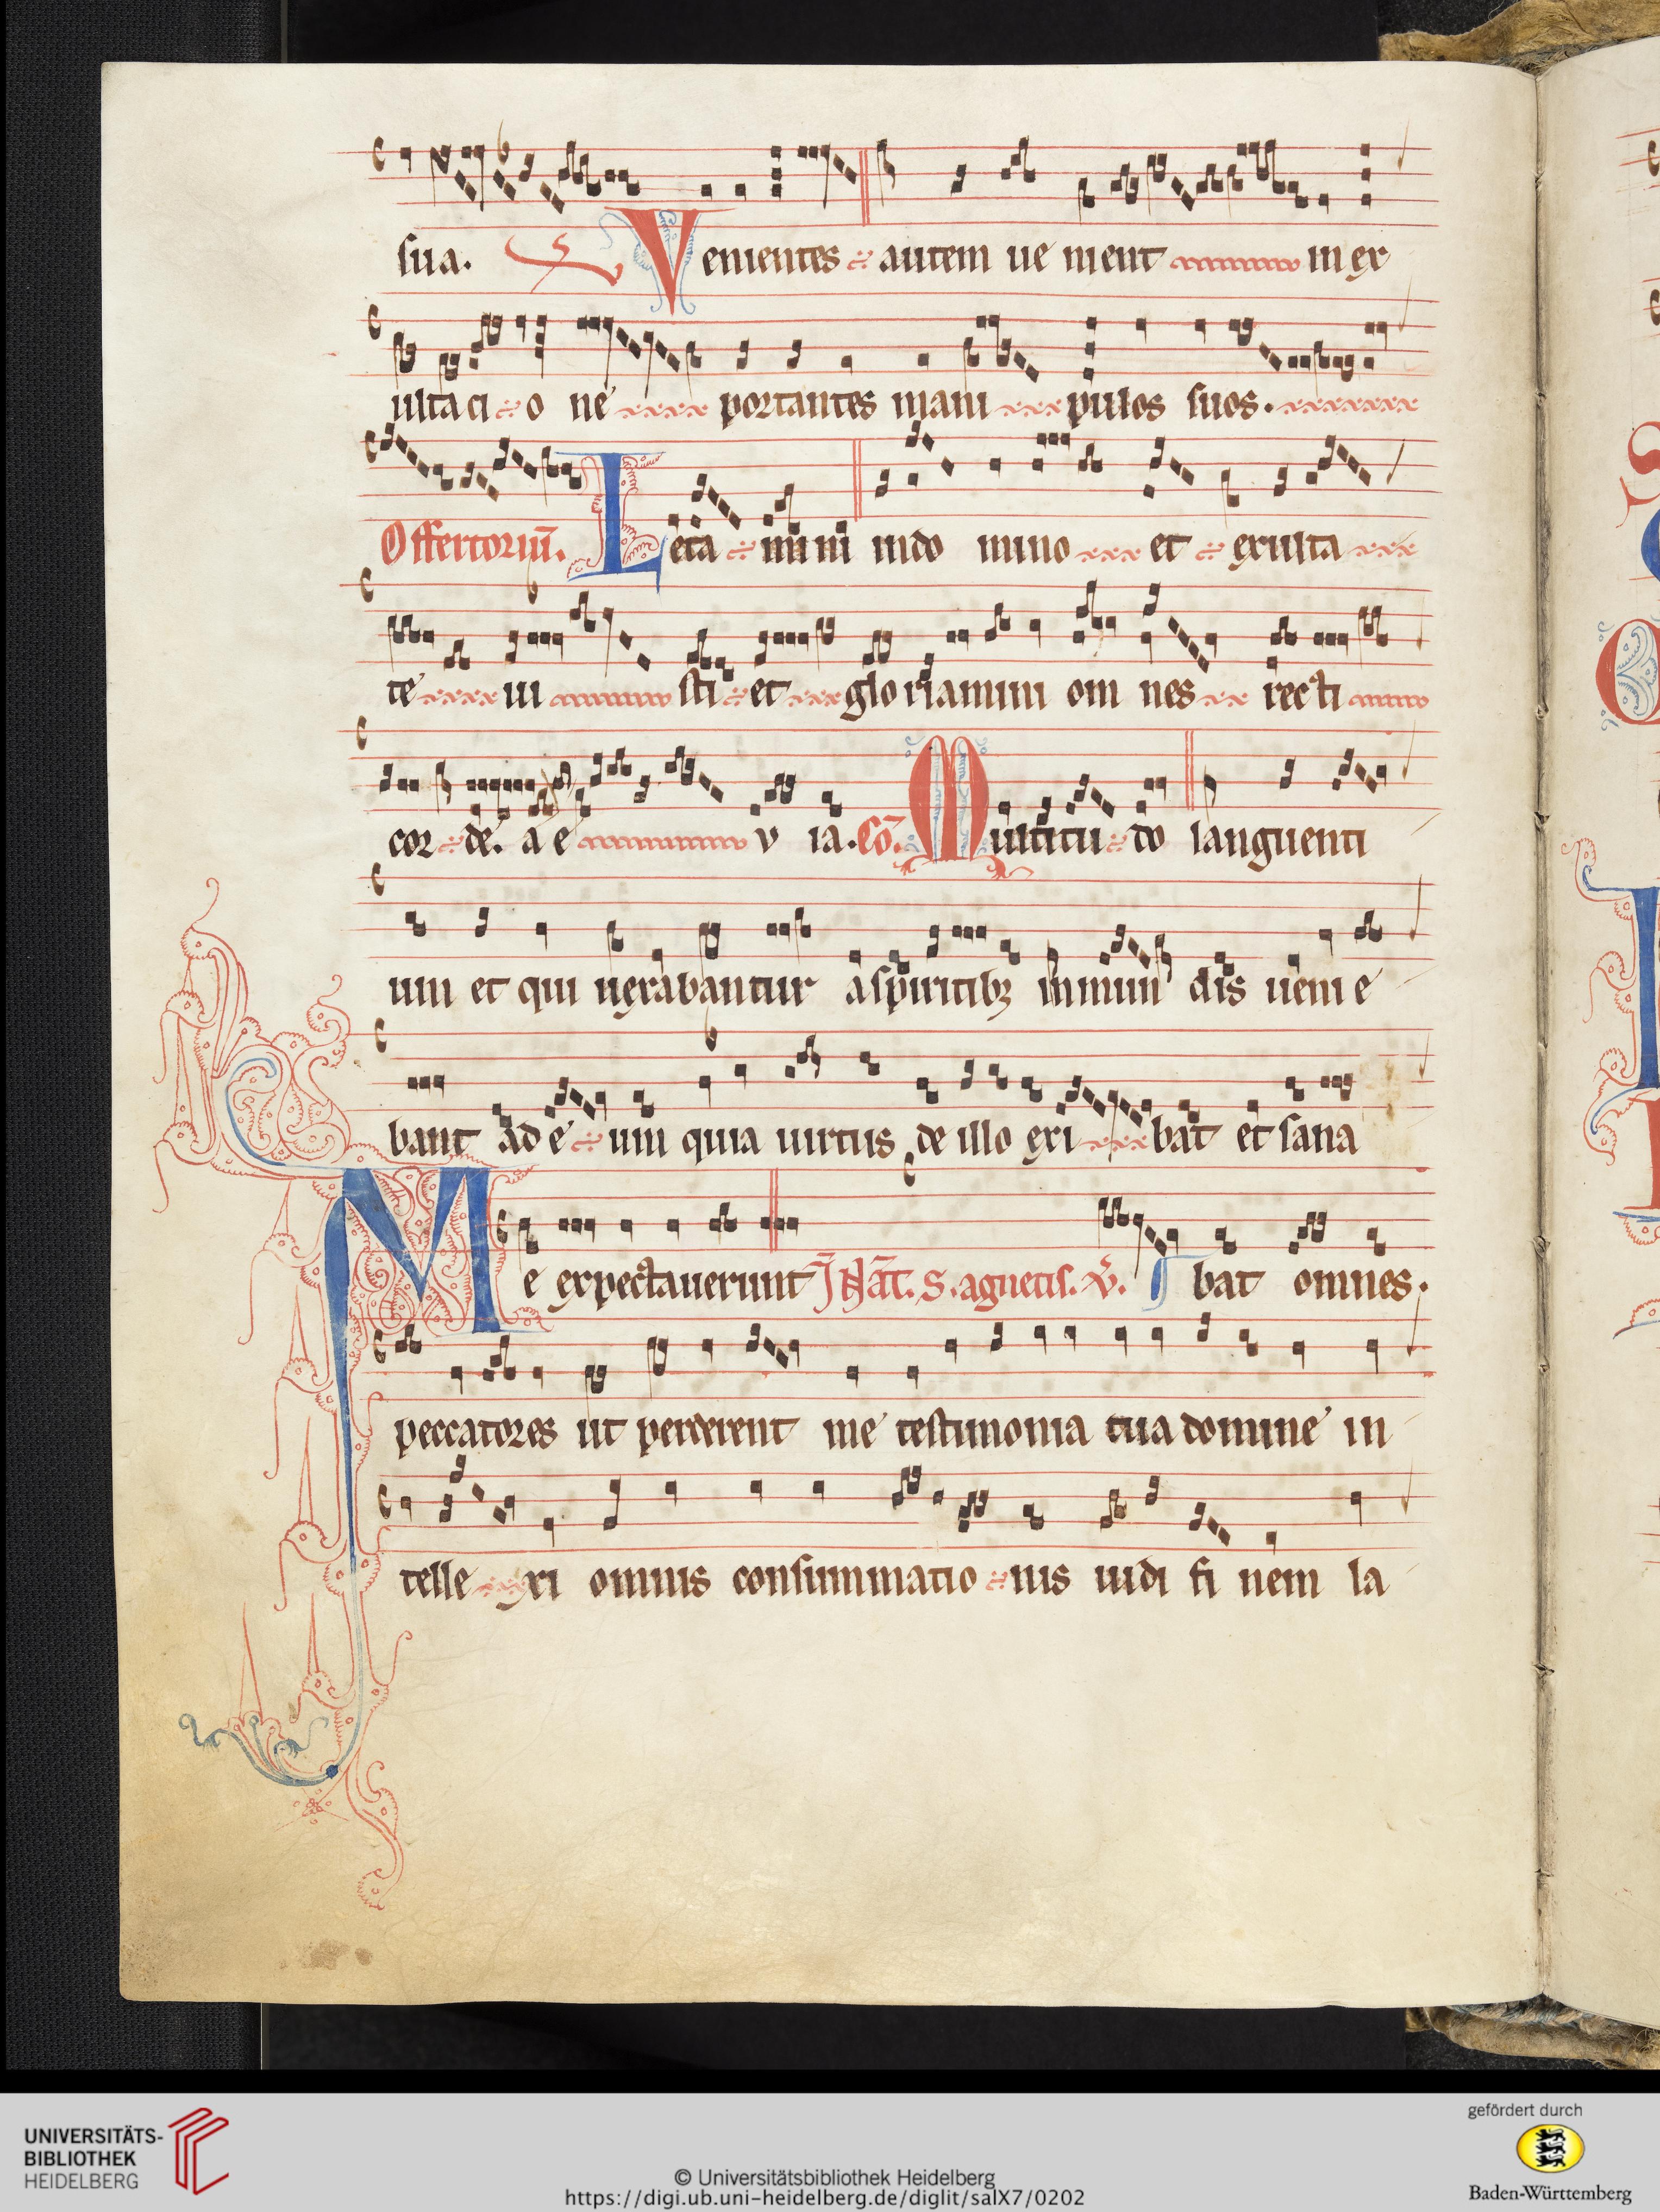 sua. V enientes autem ue nient in ex
ulta ci o ne portantes mani pulos suos.
Offertoriū. L eta mi ni indo mino et exulta
te iu sti et glo riamini om nes recti
cor de. a e v ia. Cō. M ultitu do languenti
um et qui uexabantur a spiritibꝫ inmun dis ueni e
bant ad e um quia uirtus de illo exi bat et sana
M e expectauerunt In Nāt. S. agnetis. bat omnes.
peccatores ut perderent me testimonia tua domine in
telle xi omnis consummatio nis uidi fi nem la
UNIVERSITÄTS-
BIBLIOTHEK
HEIDELBERG
© Universitätsbibliothek Heidelberg
https://digi.ub.uni-heidelberg.de/diglit/salX7/0202
gefördert durch
Baden-Württemberg